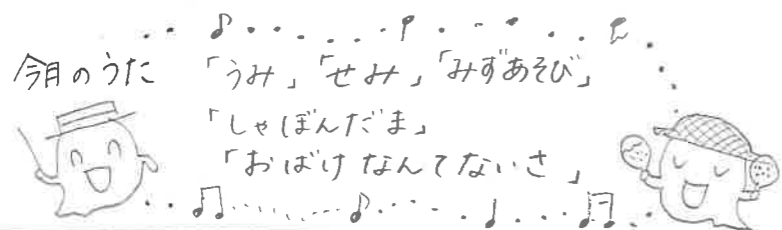 今月のうた 「うみ」「せみ」「みずあそび」
「しゃぼんだま」
「おばけなんてないさ」